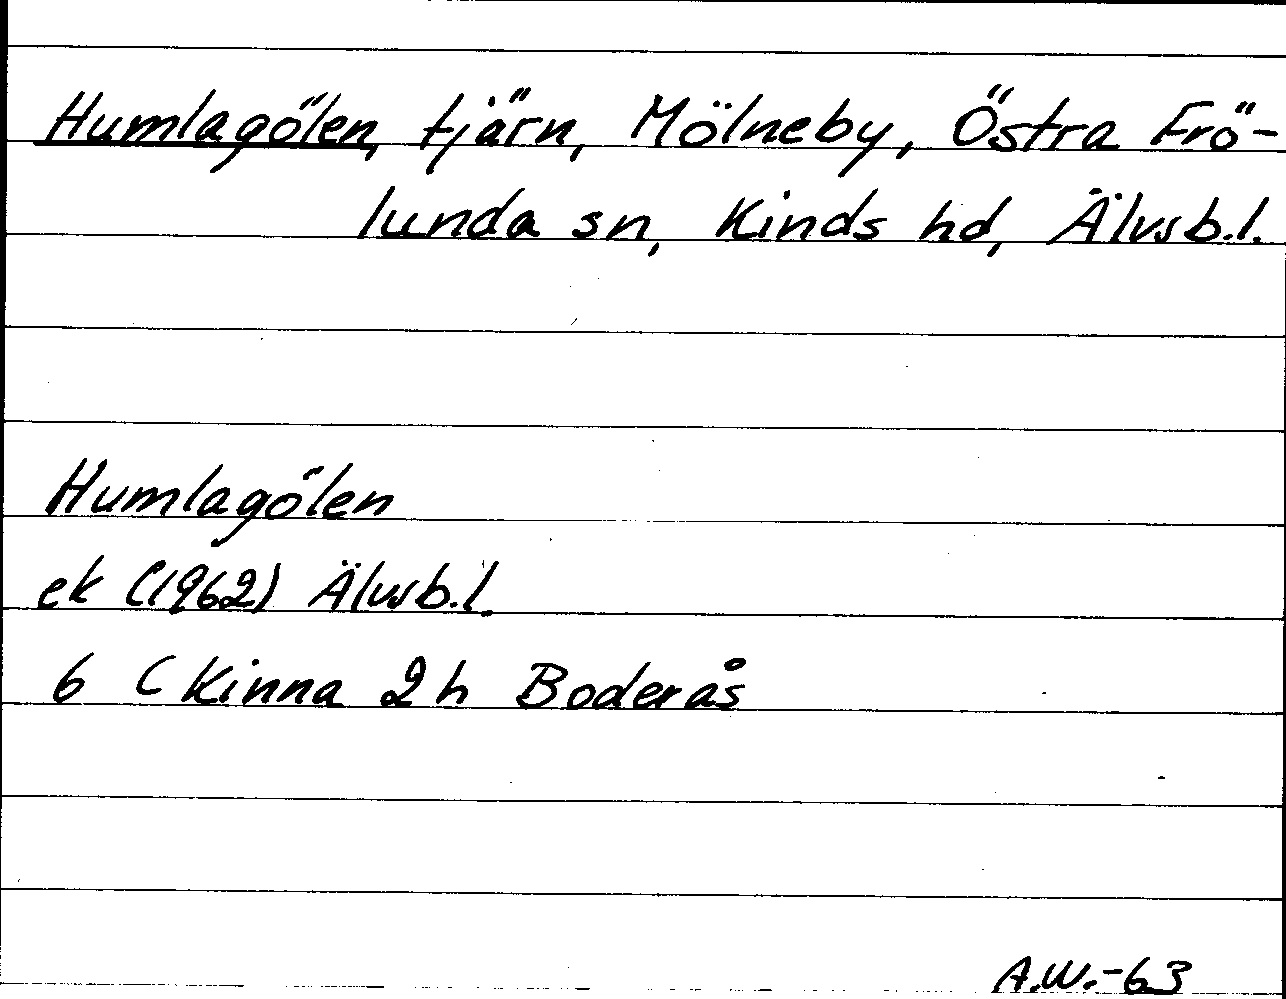 Humlagölen, tjärn, Mölneby, Östra Frö-
lunda sn, Kinds hd, Älvsb.l.
Humlagölen
ek (1962) Älvsb.l.
6 C Kinna 2 h Boderås
A.W.-63